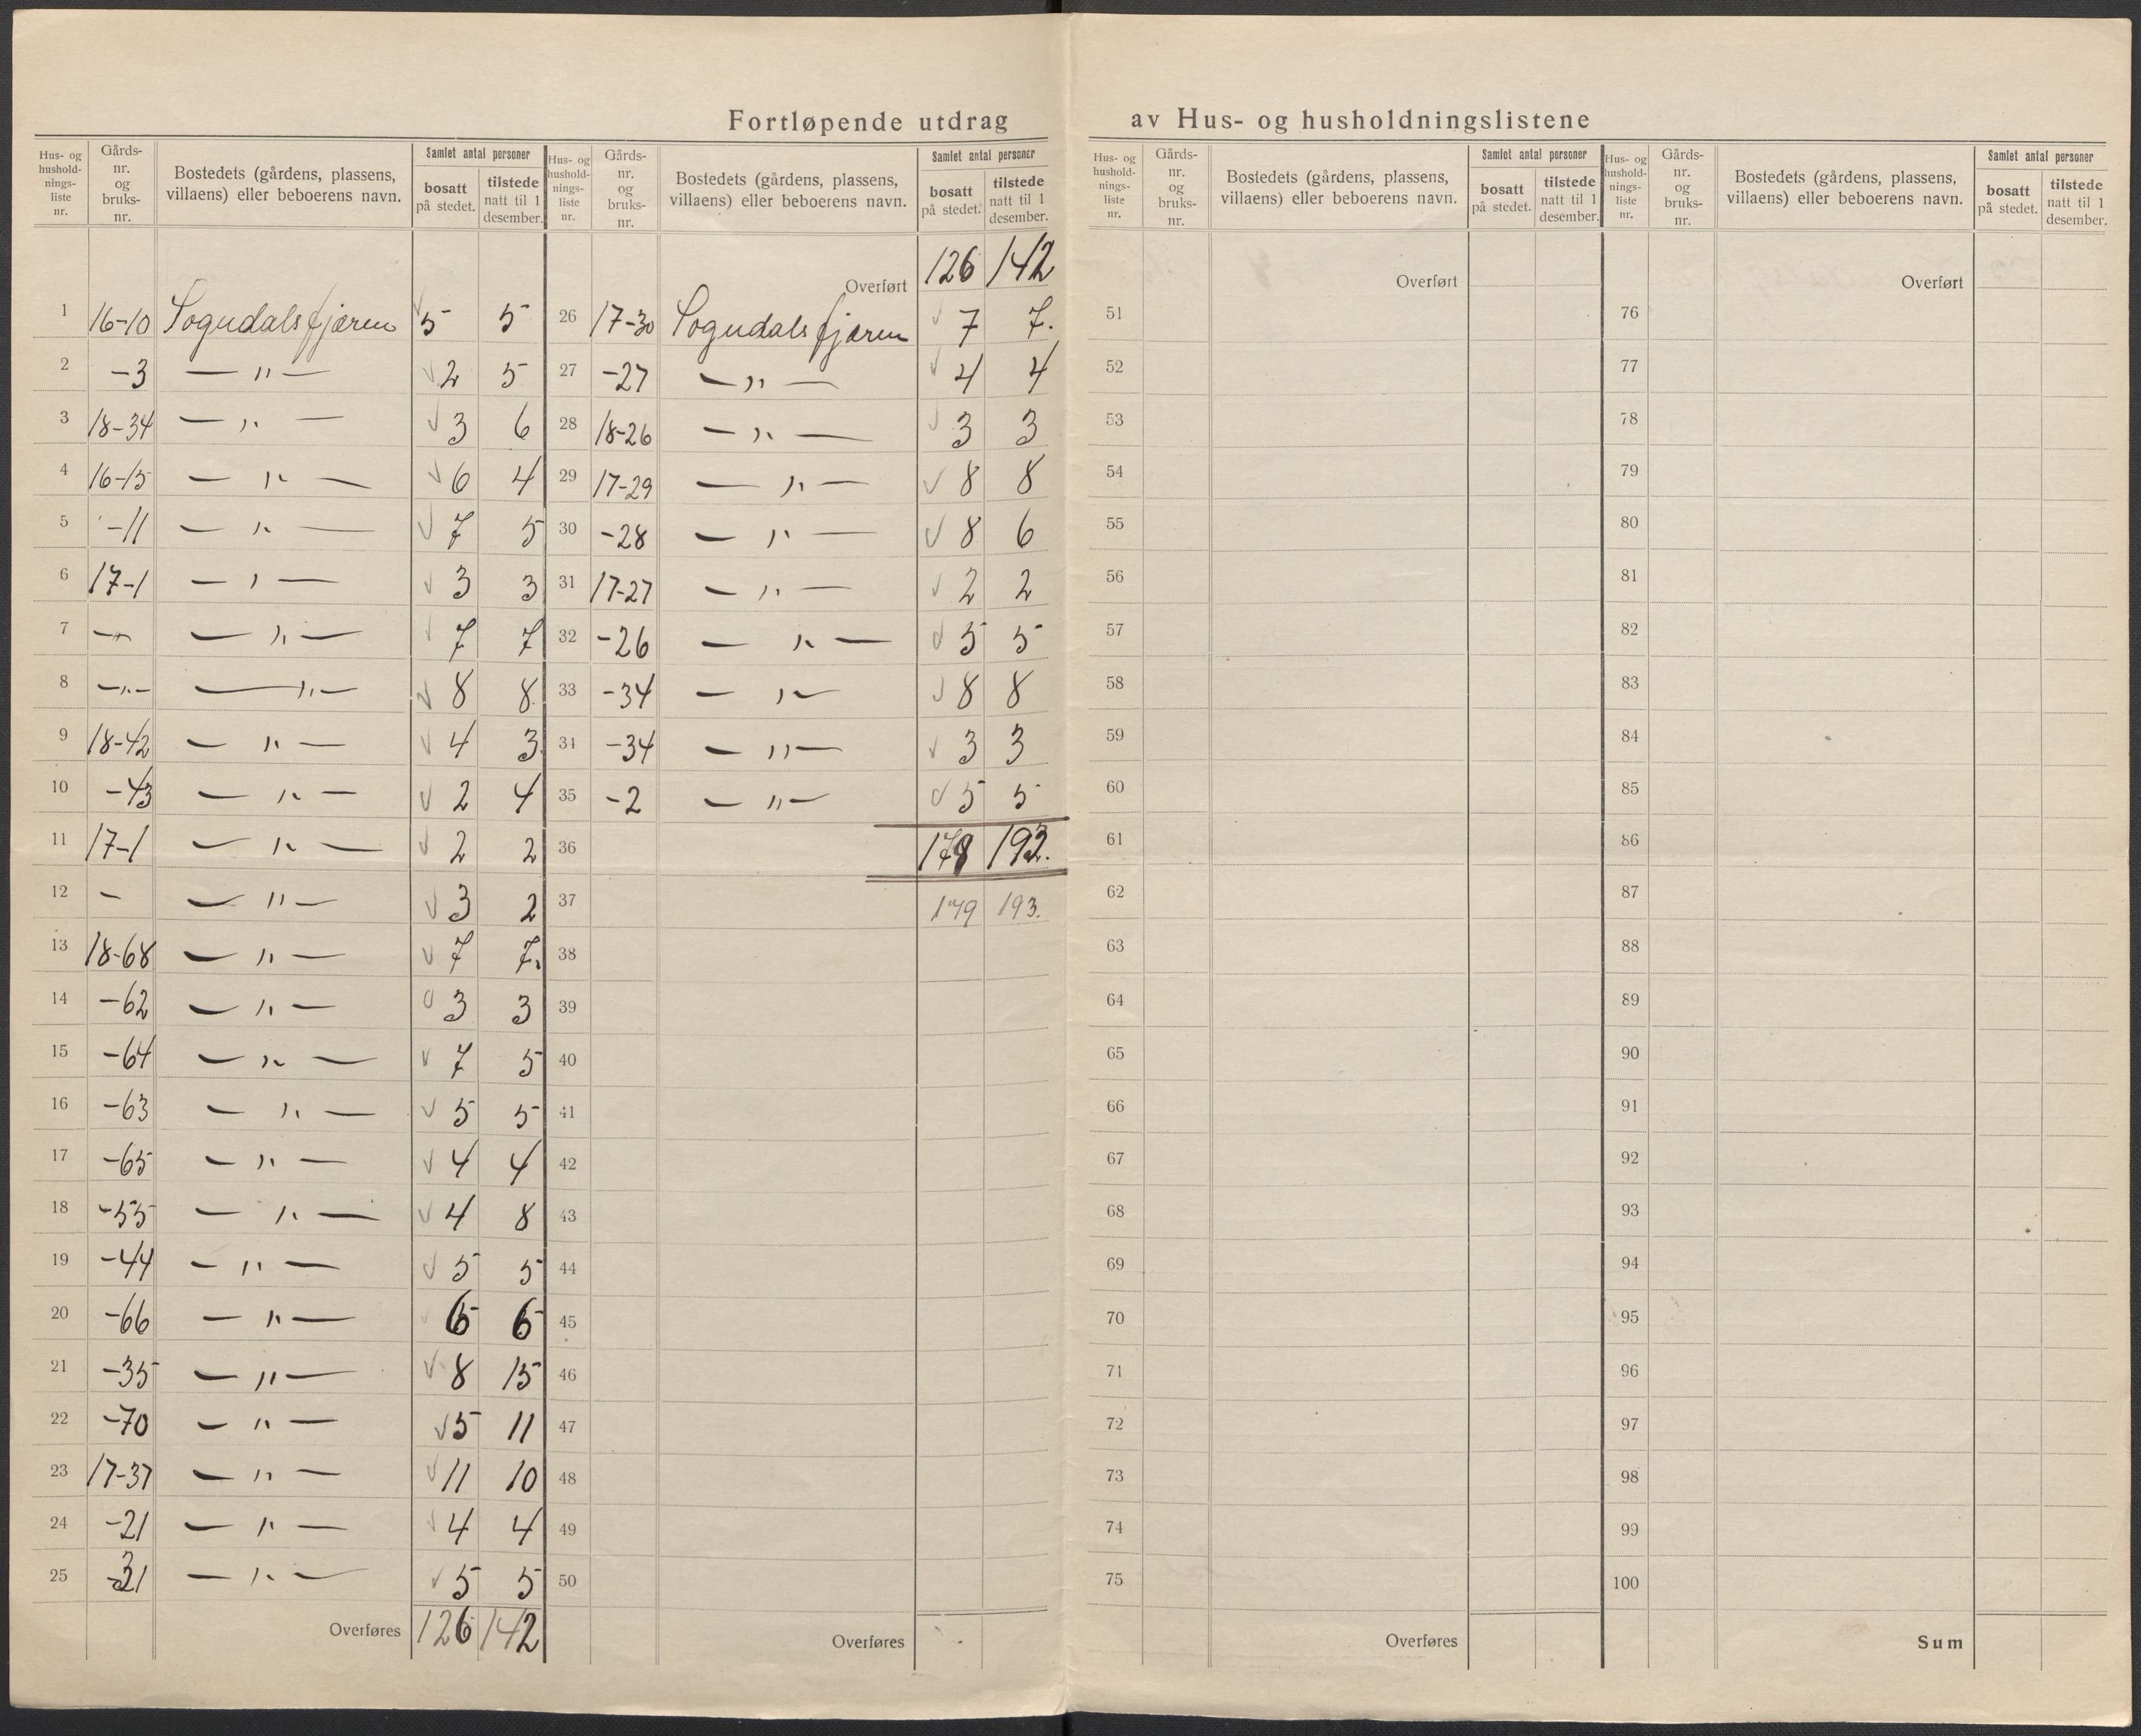 Fortløpende utdrag av Hus- og husholdningslistene
Hus- og hushold-nings-liste nr. | Gårds-nr. og bruks-nr. | Bostedets (gårdens, plassens, villaens) eller beboerens navn. | Samlet antal personer | bosatt på stedet. | tilstede natt til 1 desember.
1 16-10 Sogndalsfjæren 5 5
2 -3 — " — 2 5
3 18-34 — " — 3 6
4 16-15 — " — 6 4
5 -11 — " — 7 5
6 17-1 — " — 3 3
7 — " — — " — 7 7
8 — " — — " — 8 8
9 18-42 — " — 4 3
10 -43 — " — 2 4
11 17-1 — " — 2 2
12 - — " — 3 2
13 18-68 — " — 7 7.
14 -62 — " — 3 3
15 -64 — " — 7 5
16 -63 — " — 5 5
17 -65 — " — 4 4
18 -55 — " — 4 8
19 -44 — " — 5 5
20 -66 — " — 6 6
21 -35 — " — 8 15
22 -70 — " — 5 11
23 17-37 — " — 11 10
24 -21 — " — 4 4
25 -31 — " — 5 5
Overføres 126 142
Hus- og hushold-nings-liste nr. | Gårds-nr. og bruks-nr. | Bostedets (gårdens, plassens, villaens) eller beboerens navn. | Samlet antal personer | bosatt på stedet. | tilstede natt til 1 desember.
Overført 126 142
26 17-30 Sogndalsfjæren 7 7.
27 -27 — " — 4 4
28 18-26 — " — 3 3
29 17-29 — " — 8 8
30 -28 — " — 8 6
31 17-27 — " — 2 2
32 -26 — " — 5 5
33 -34 — " — 8 8
34 -34 — " — 3 3
35 -2 — " — 5 5
36 193.
37 179 193.
38
39
40
41
42
43
44
45
46
47
48
49
50
Overføres
Hus- og hushold-nings-liste nr. | Gårds-nr. og bruks-nr. | Bostedets (gårdens, plassens, villaens) eller beboerens navn. | Samlet antal personer | bosatt på stedet. | tilstede natt til 1 desember.
Overført
51
52
53
54
55
56
57
58
59
60
61
62
63
64
65
66
67
68
69
70
71
72
73
74
75
Overføres
Hus- og hushold-nings-liste nr. | Gårds-nr. og bruks-nr. | Bostedets (gårdens, plassens, villaens) eller beboerens navn. | Samlet antal personer | bosatt på stedet. | tilstede natt til 1 desember.
Overført
76
77
78
79
80
81
82
83
84
85
86
87
88
89
90
91
92
93
94
95
96
97
98
99
100
Sum